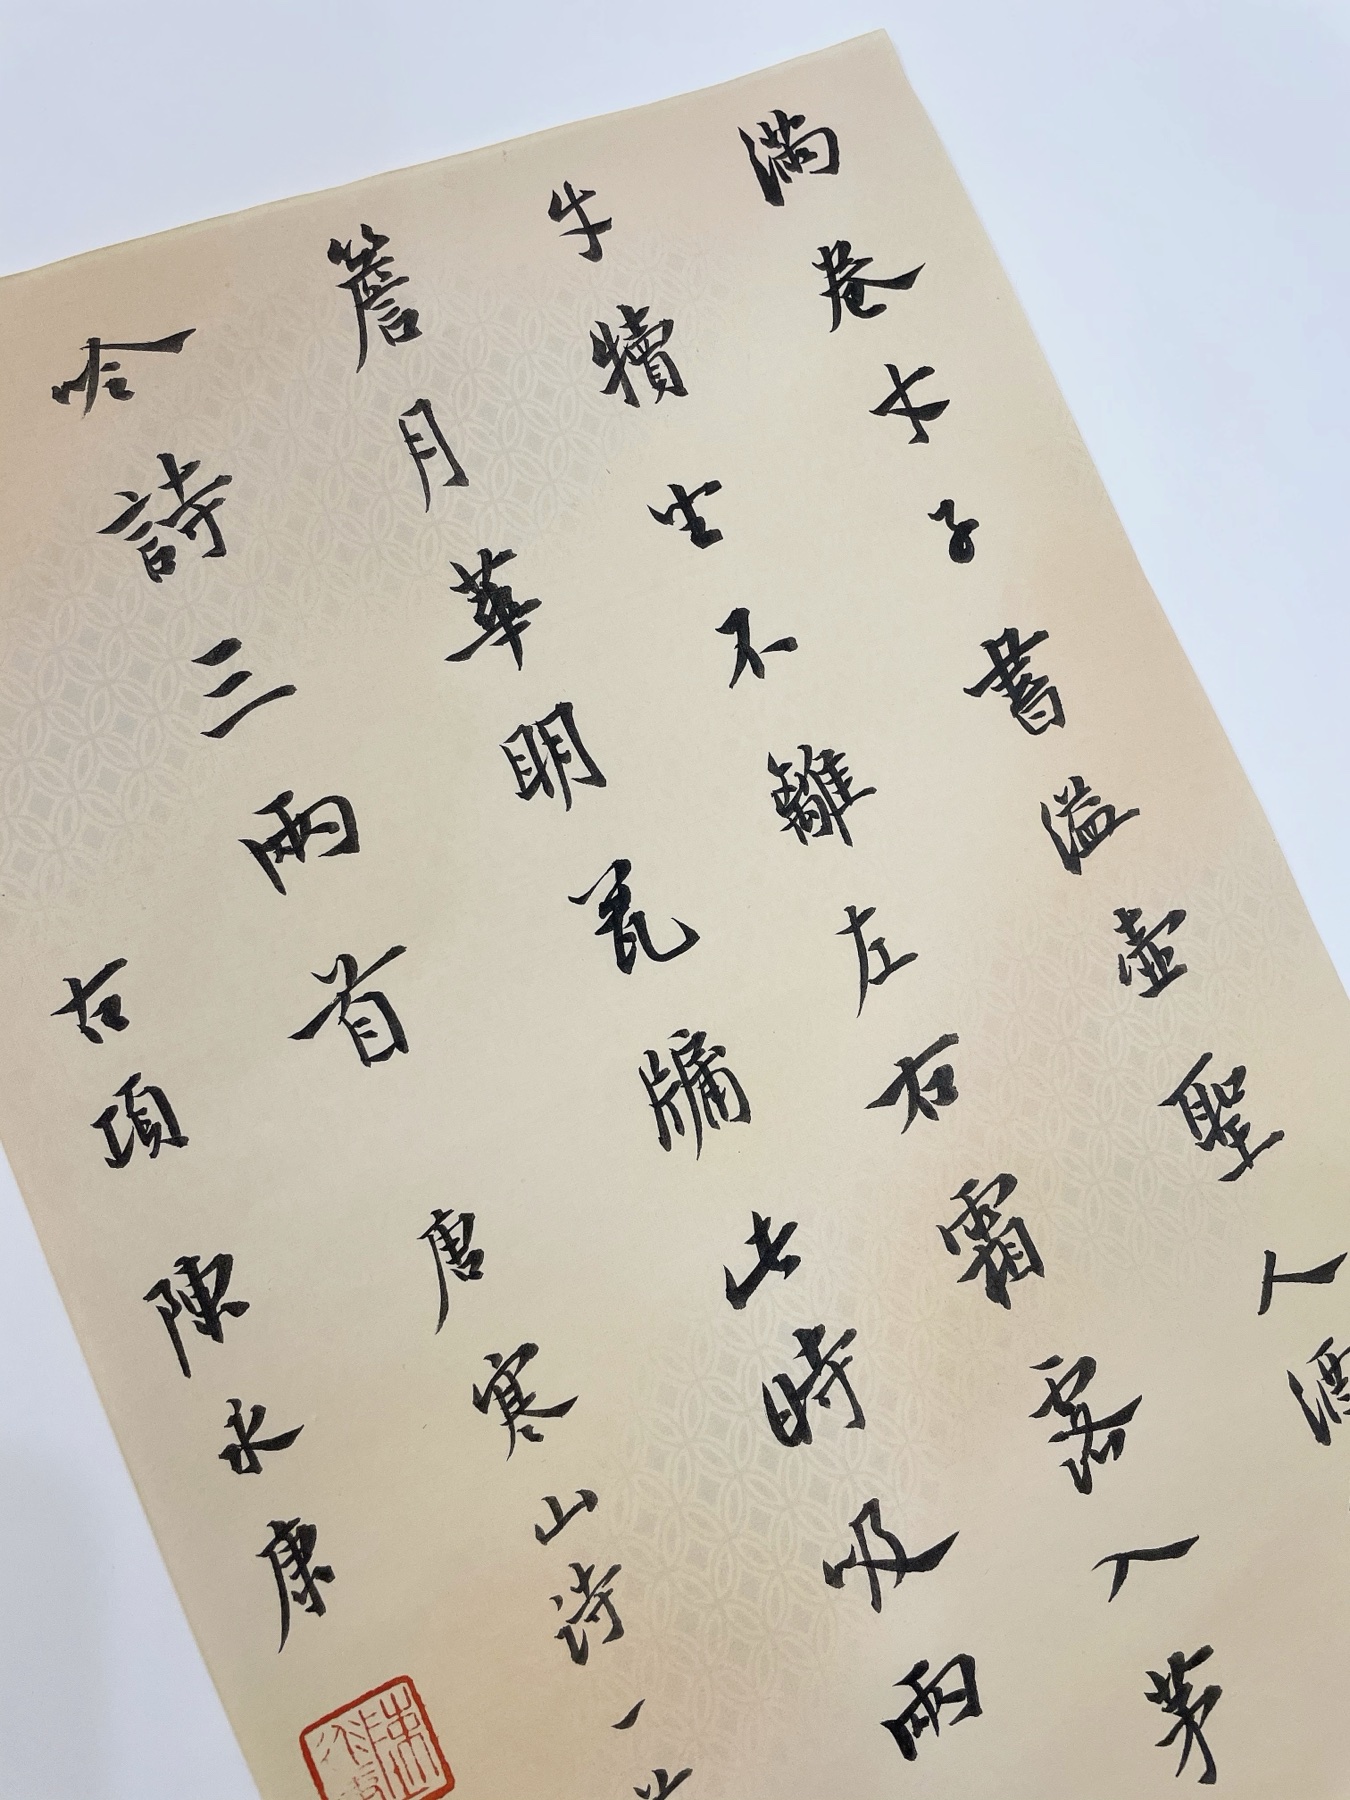 滿卷才子書溢壺聖人酒
牛犢坐不離左右霜露入茅
簷月華明瓮牖此時吸兩
吟詩三兩首 唐寒山詩一
古項陳永康